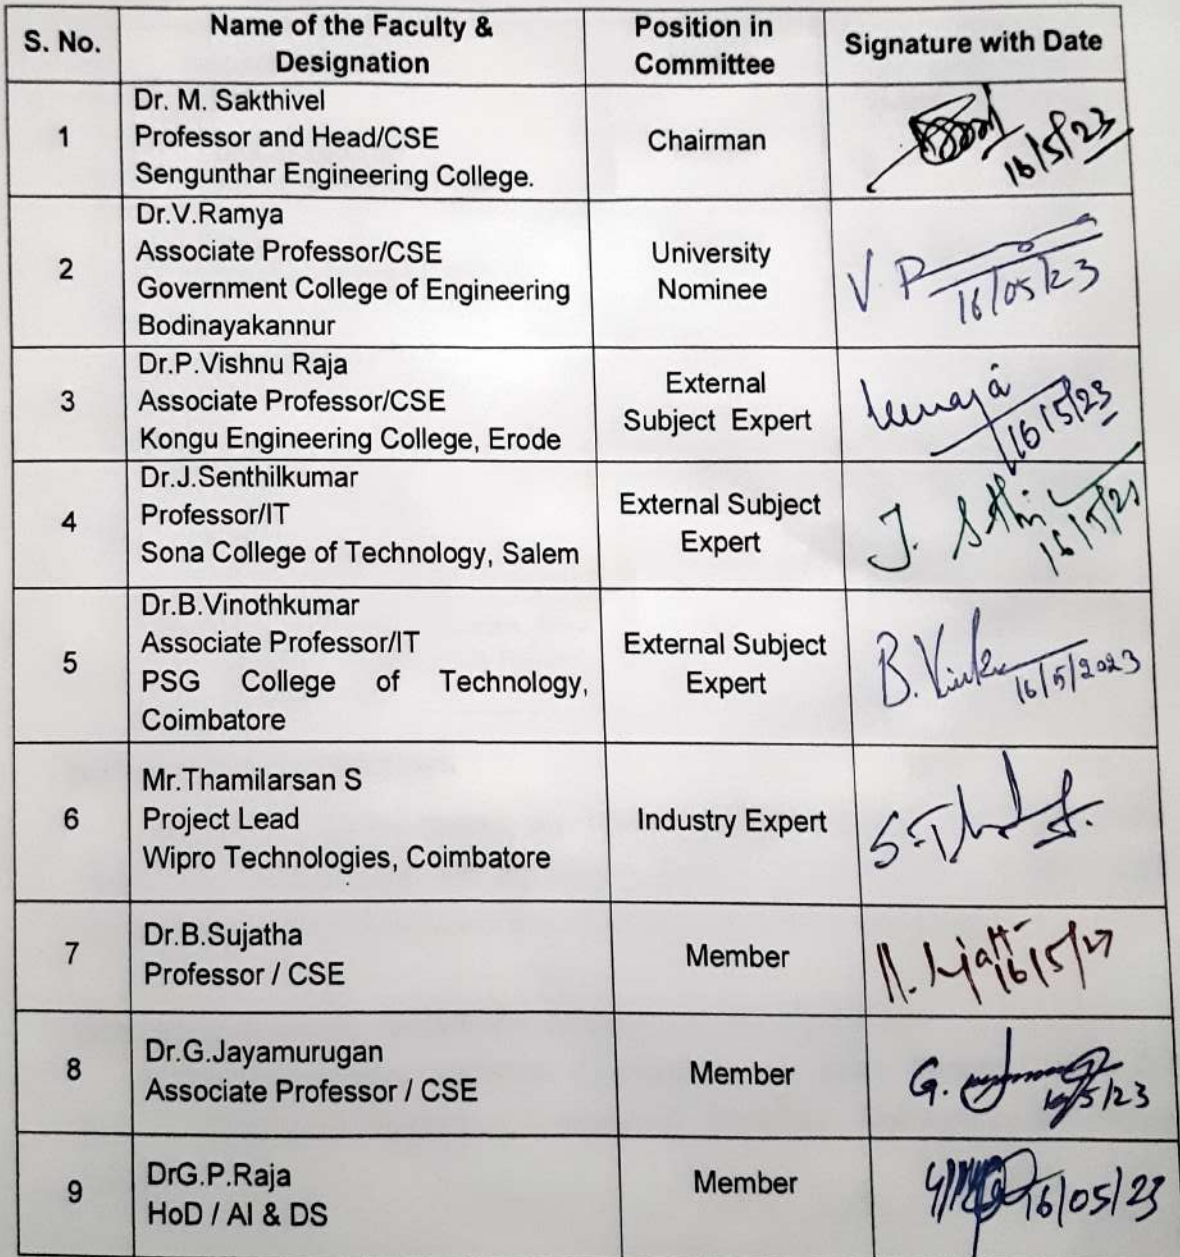 S. No.
Name of the Faculty &
Designation
Position in
Committee
Signature with Date
1
Dr. M. Sakthivel
Professor and Head/CSE
Sengunthar Engineering College.
Chairman
16/5/23
2
Dr.V.Ramya
Associate Professor/CSE
Government College of Engineering
Bodinayakannur
University
Nominee
16/05/23
3
Dr.P.Vishnu Raja
Associate Professor/CSE
Kongu Engineering College, Erode
External
Subject Expert
16/5/23
4
Dr.J.Senthilkumar
Professor/IT
Sona College of Technology, Salem
External Subject
Expert
J.
5
Dr.B.Vinothkumar
Associate Professor/IT
PSG College of Technology,
Coimbatore
External Subject
Expert
B.
16/5/2023
6
Mr.Thamilarsan S
Project Lead
Wipro Technologies, Coimbatore
Industry Expert
7
Dr.B.Sujatha
Professor / CSE
Member
8
Dr.G.Jayamurugan
Associate Professor / CSE
Member
G.
16/5/23
9
DrG.P.Raja
HoD / AI & DS
Member
16/05/23